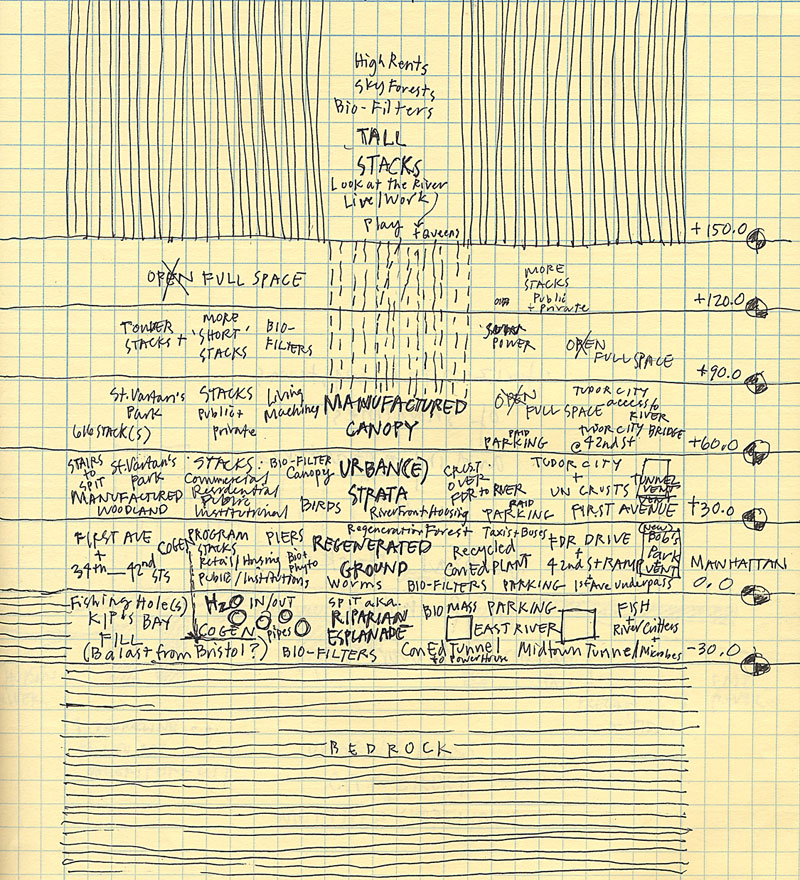 High Rents
Sky Forests
Bio-Filters
TALL
STACKS
Look at the River
Live/Work
Play + Queens
+150.0
OPEN FULL SPACE
MORE
STACKS
Public
+ Private
+120.0
TOWER
STACKS +
MORE
'SHORT'
STACKS
BIO-
FILTERS
POWER
OPEN
FULL SPACE
+90.0
St. Vartan's
Park
616 STACK(S)
STACKS
Public +
Private
Living
Machines
MANUFACTURED
CANOPY
OPEN
FULL SPACE
PAID
PARKING
TUDOR CITY
access to
RIVER
TUDOR CITY BRIDGE
@ 42nd St
+60.0
STAIRS
to
SPIT
St. Vartan's
Park
MANUFACTURED
WOODLAND
STACKS:
Commercial
Residential
Public
Institutional
BIO-FILTER
Canopy
BIRDS
URBAN(E)
STRATA
RiverFront Housing
CRUST
OVER
FDR to RIVER
PAID
PARKING
TUDOR CITY
+
UN CRUSTS
FIRST AVENUE
TUNNEL
VENT
+30.0
FIRST AVE
+
34th—42nd
STS
COGEN
PROGRAM
STACKS
Retail/Housing
Public/Institutions
PIERS
Bio +
Phyto
Regeneration Forest
REGENERATED
GROUND
Worms
Taxis + Buses
Recycled
ConEd PLANT
BIO-FILTERS
PARKING
FDR DRIVE
+
42nd St RAMP
1st Ave Underpass
(New)
Bob's
Park
VENT
MANHATTAN
0.0
Fishing Hole(s)
KIP'S BAY
FILL
(Balast from Bristol?)
H2O IN/OUT
COGEN
Pipes
BIO-FILTERS
SPIT aka.
RIPARIAN
ESPLANADE
BIOMASS
PARKING
EAST RIVER
ConEd Tunnel
to Powerhouse
Midtown Tunnel
FISH
+
River Critters
+
Microbes
-30.0
BEDROCK